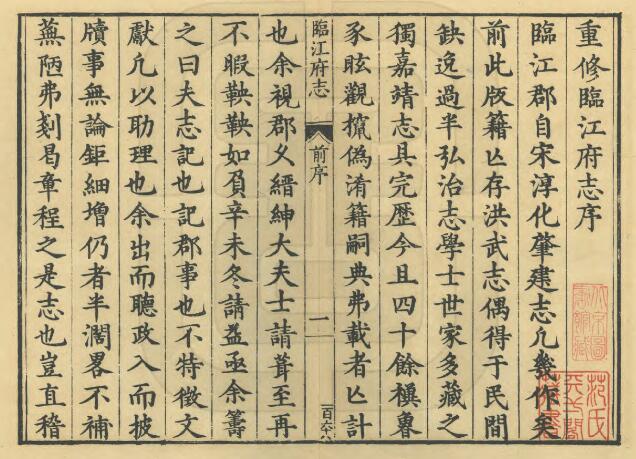 重修臨江府志序
臨江郡自宋淳化肇建志凡幾作矣
前此版籍亡存洪武志偶得于民間
缺逸過半弘治志學士世家多藏之
獨嘉靖志具完歷今且四十餘禩魯
豕眩觀攛偽淆籍嗣典弗載者亡計
臨江府志
前序
一
百六八
也余視郡乂縉紳大夫士請葺至再
不暇鞅鞅如負辛未冬請益亟余籌
之曰夫志記也記郡事也不特徵文
獻凡以助理也余出而聽政入而披
牘事無論鉅細增仍者半濶畧不補
蕪陋弗剗曷章程之是志也豈直稽
范氏
天一閣
藏書